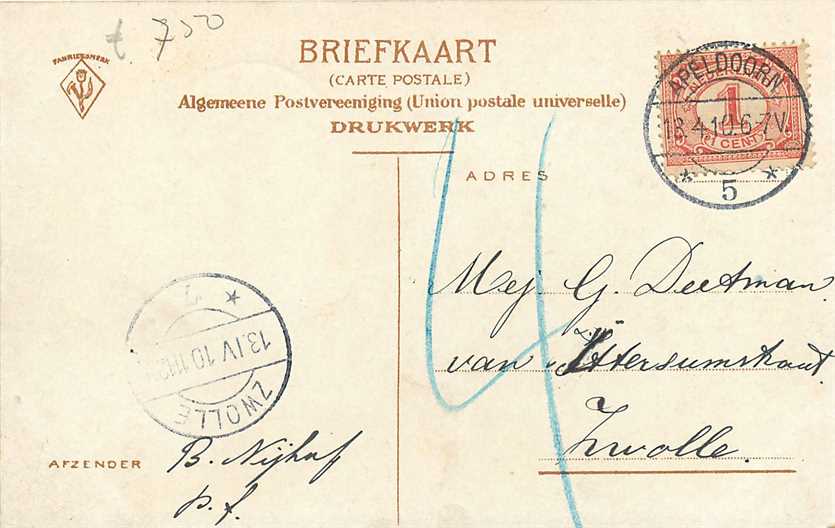 f 750
FABRIEKSMERK
BRIEFKAART
(CARTE POSTALE)
Algemeene Postvereeniging (Union postale universelle)
DRUKWERK
APELDOORN
13.4.10.6-7V
5
1
1 CENT
ADRES
4
Mej G. Deetman.
van Ittersumstraat.
Zwolle.
7
13.IV.10
ZWOLLE
AFZENDER B. Nijhof
p.f.